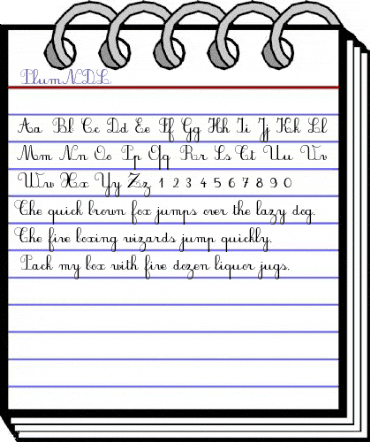 PlumNDL
Aa Bb Cc Dd Ee Ff Gg Hh Ii Jj Kk Ll
Mm Nn Oo Pp Qq Rr Ss Tt Uu Vv
Ww Xx Yy Zz 1 2 3 4 5 6 7 8 9 0
The quick brown fox jumps over the lazy dog.
The five boxing wizards jump quickly.
Pack my box with five dozen liquor jugs.